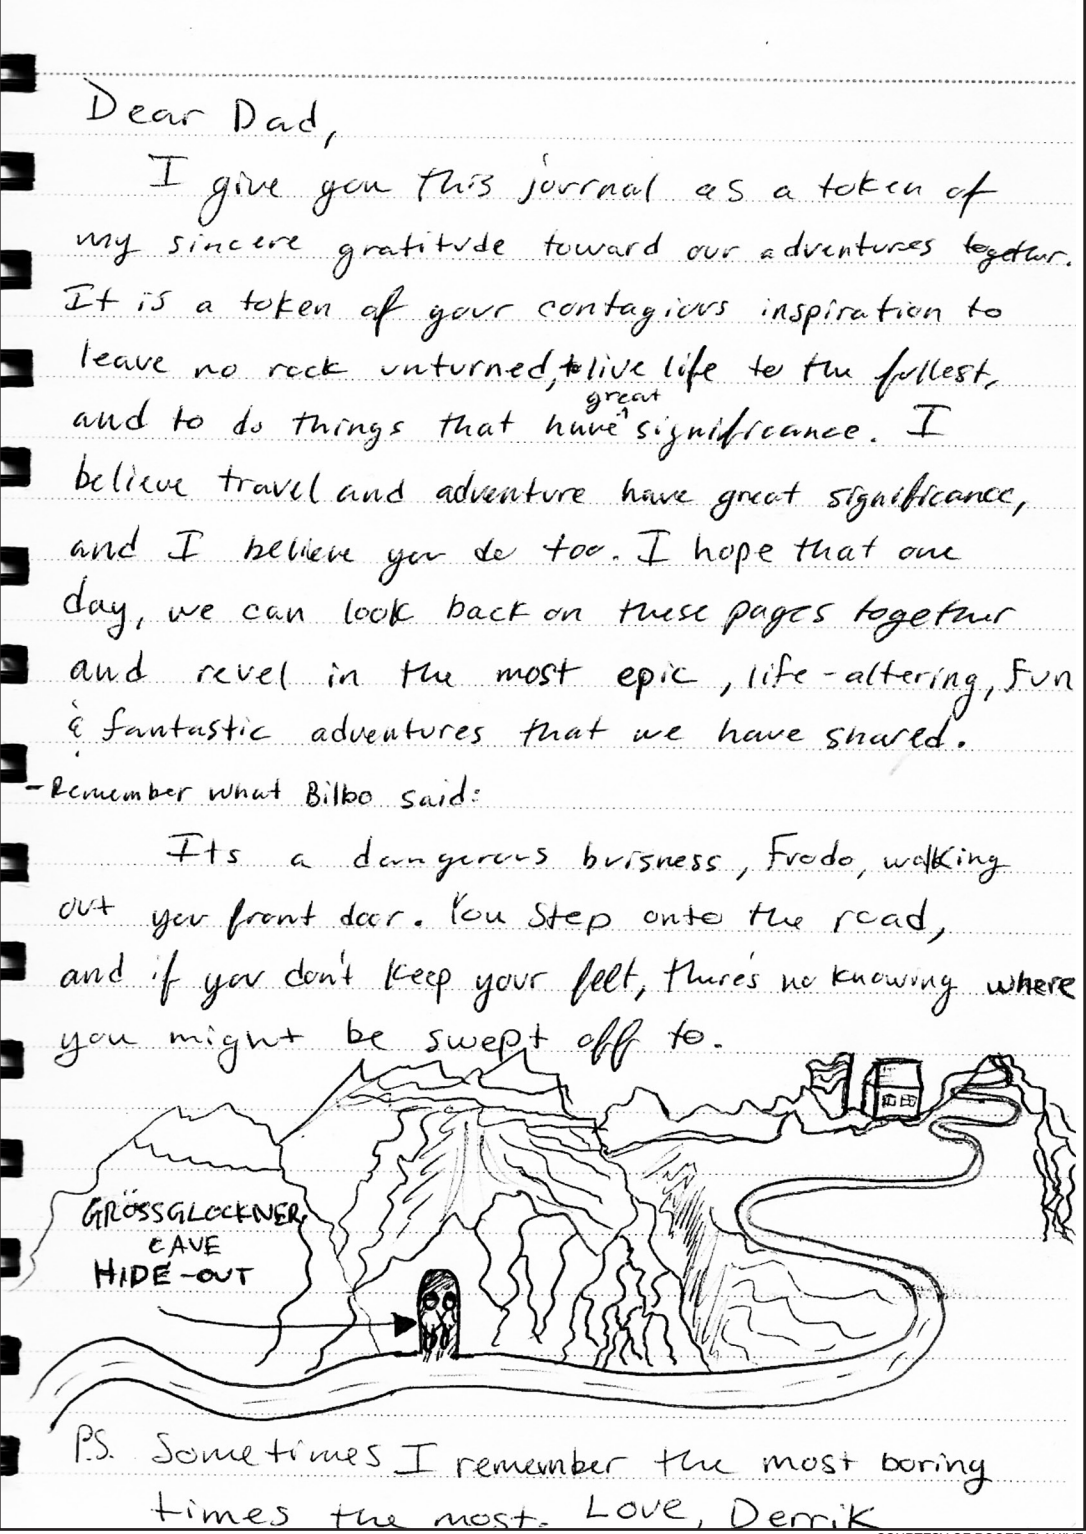 Dear Dad,
I give you this journal as a token of
my sincere gratitude toward our adventures together.
It is a token of your contagious inspiration to
leave no rock unturned, to live life to the fullest,
and to do things that have great significance. I
believe travel and adventure have great significance,
and I believe you do too. I hope that one
day, we can look back on these pages together
and revel in the most epic, life-altering, fun
& fantastic adventures that we have shared.
-Remember what Bilbo said:
Its a dangerous buisness, Frodo, walking
out your front door. You step onto the road,
and if you don't keep your feet, there's no knowing where
you might be swept off to.
GRÖSSGLOCKNER
CAVE
HIDE-OUT
P.S. Sometimes I remember the most boring
times the most. Love, Derrik